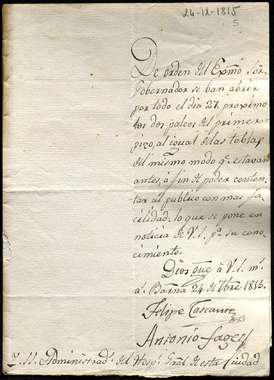 24-12-1815
5
De orden del Exmo Sor
Gobernador se han abrir
por todo el dia 27 proximo
los dos palcos del primer
piso, al igual de las tablas
del mismo modo qe. estavan
antes, á fin de poder conten-
tar al publico con mas fa-
cilidad; lo que se pone en
noticia de V.S. pa. su cono-
cimiento.
Dios gue. á V.S. m.
a. Barna 24 Dbre 1815.
Felipe
Antonio
S.S. Administrads. del Hospl. Gral. de esta Ciudad